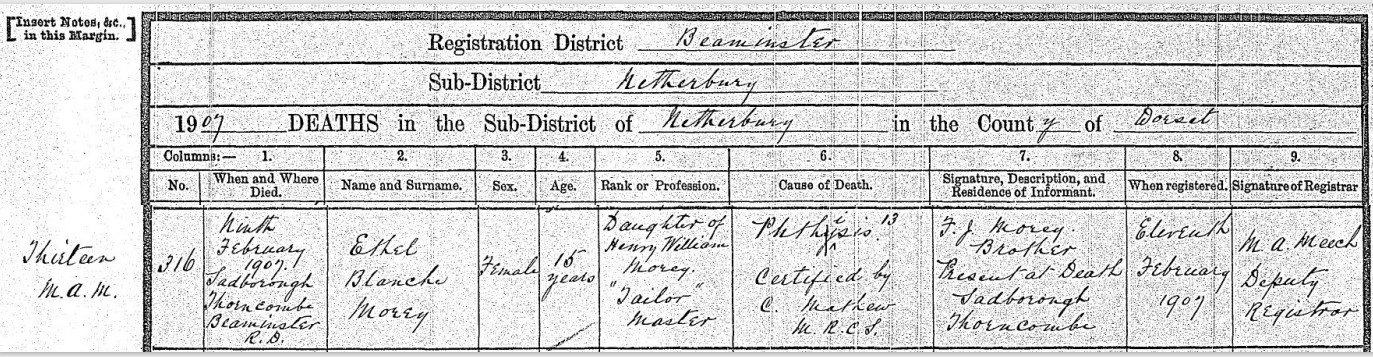 [Insert Notes, &c., in this Margin.]
Registration District Beaminster
Sub-District Netherbury
1907 DEATHS in the Sub-District of Netherbury in the County of Dorset
Columns:— 1. 2. 3. 4. 5. 6. 7. 8. 9.
No. When and Where Died. Name and Surname. Sex. Age. Rank or Profession. Cause of Death. Signature, Description, and Residence of Informant. When registered. Signature of Registrar
Thirteen
M.A.M.
316
Ninth
February
1907.
Sadborough
Thorncombe
Beaminster
R.D.
Ethel
Blanche
Morey
Female
15
years
Daughter of
Henry William
Morey.
"Tailor"
Master
Phthisis 13
Certified by
C. Mathew
M.R.C.S.
F. J. Morey.
Brother
Present at Death
Sadborough
Thorncombe
Eleventh
February
1907
M. A. Meech
Deputy
Registrar